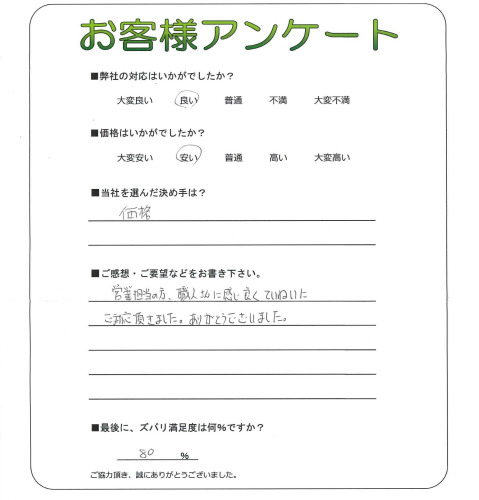 お客様アンケート
■弊社の対応はいかがでしたか？
大変良い 良い 普通 不満 大変不満
■価格はいかがでしたか？
大変安い 安い 普通 高い 大変高い
■当社を選んだ決め手は？
価格
■ご感想・ご要望などをお書き下さい。
営業担当の方、職人さんに感じ良くていねいに
ご対応頂きました。ありがとうございました。
■最後に、ズバリ満足度は何%ですか？
80 %
ご協力頂き、誠にありがとうございました。